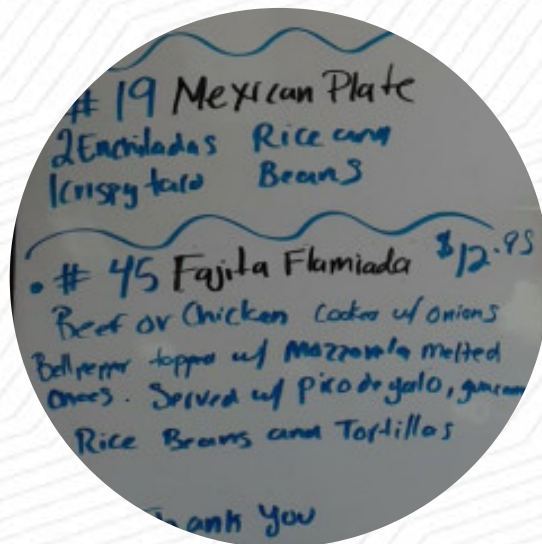 # 19 Mexican Plate
2 Enchiladas Rice and
1 Crispy taco Beans
• # 45 Fajita Flamiada $12.95
Beef or Chicken Cooked w/ onions
Bell pepper topped w/ Mozzorela melted
Served w/ pico de galo,
Rice Beans and Tortillas
Thank You